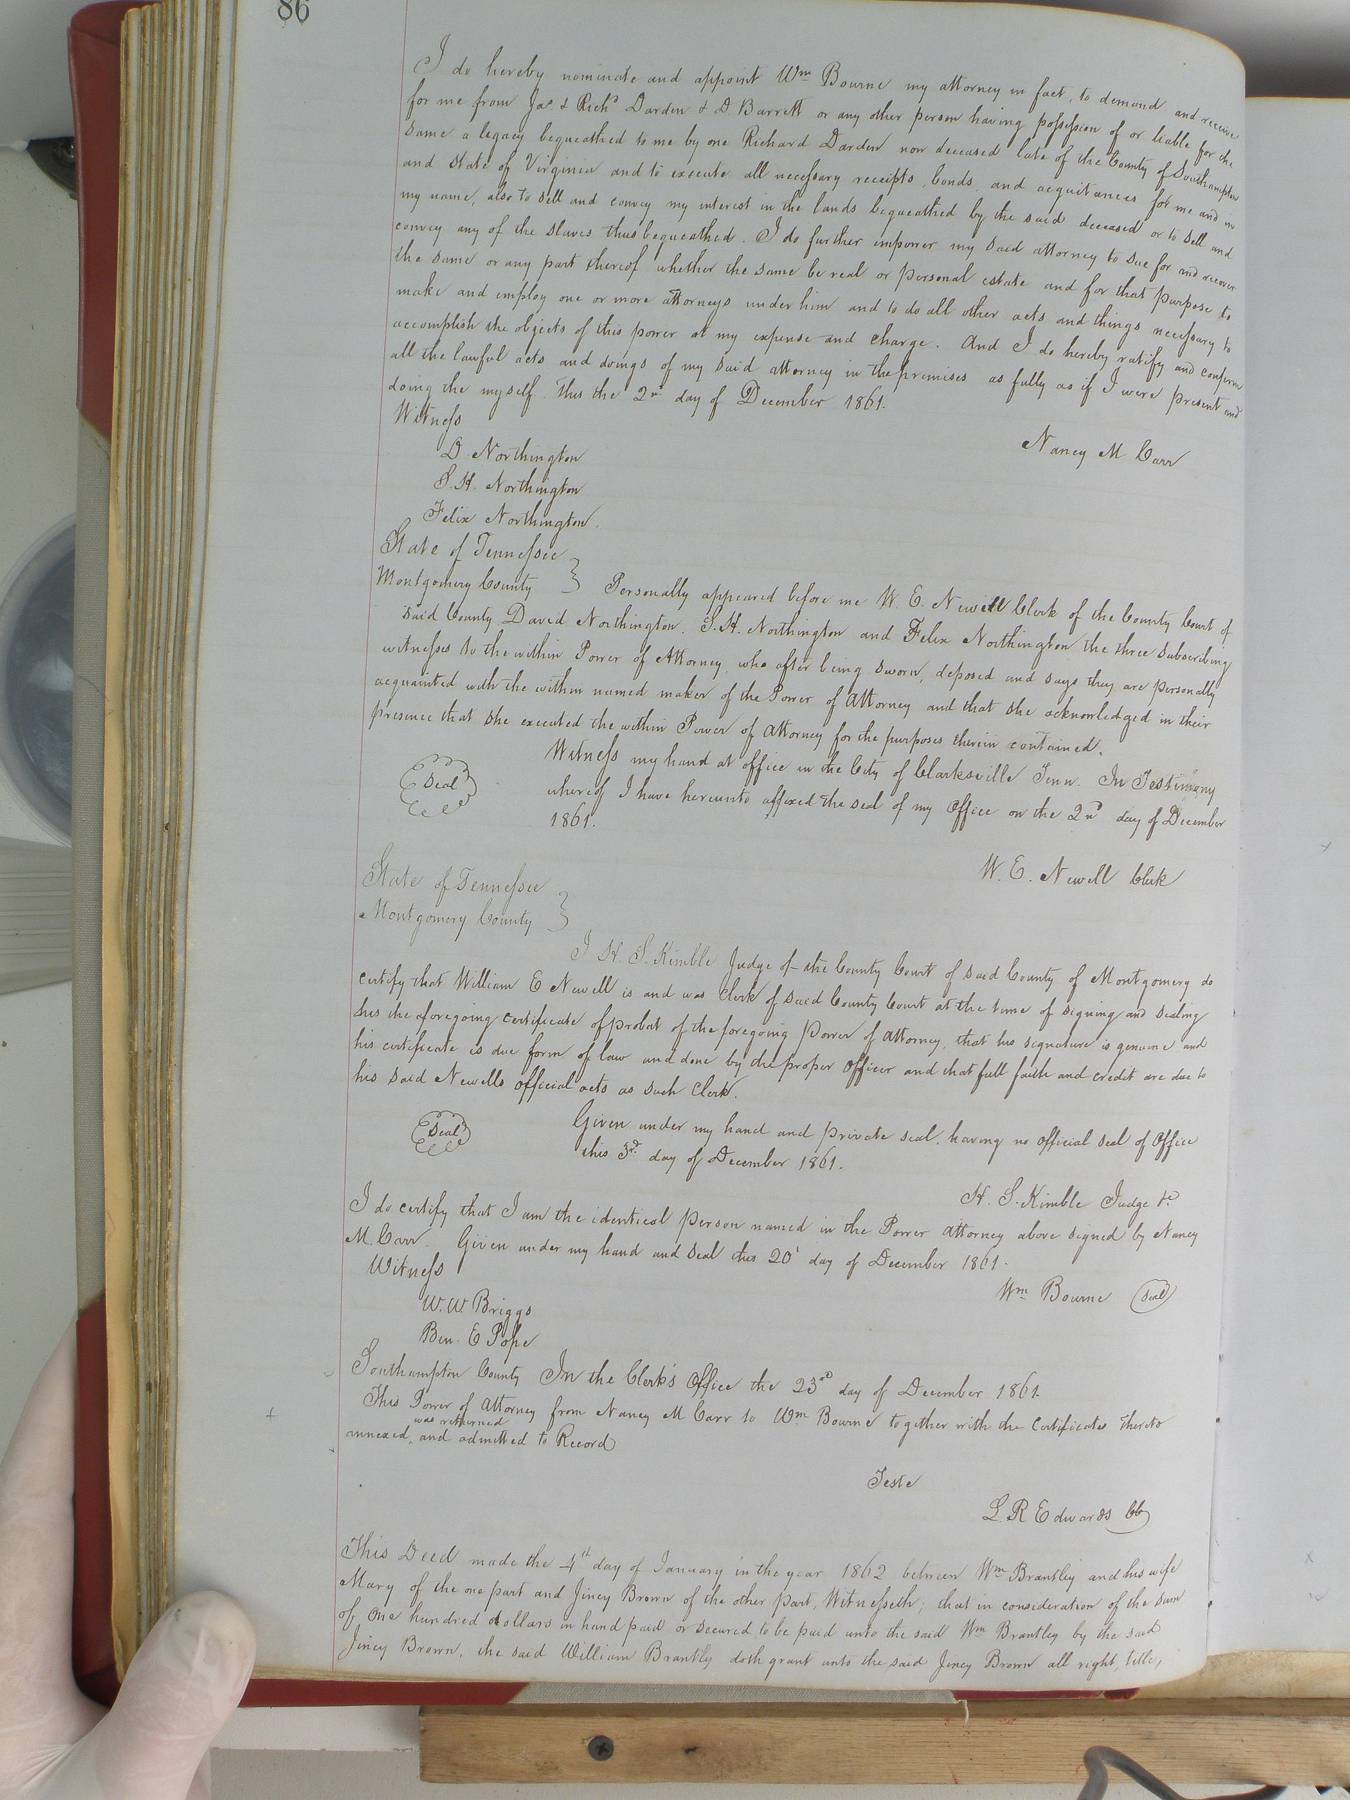 86
I do hereby nominate and appoint Wm Bourne my attorney in fact, to demand and receive
for me from Jas & Richd Darden & D Barrett or any other person having possession of or liable for the
same a legacy bequeathed to me by one Richard Darden now deceased late of the County of Southampton
and State of Virginia and to execute all necessary receipts, bonds, and acquitances for me and in
my name, also to sell and convey my interest in the lands bequeathed by the said deceased or to sell and
convey any of the slaves thus bequeathed. I do further impower my said attorney to sue for and recover
the same or any part thereof whether the same be real or personal estate and for that purpose to
make and employ one or more attorneys under him and to do all other acts and things necessary to
accomplish the objects of this power at my expense and charge. And I do hereby ratify and confirm
all the lawful acts and doings of my said attorney in the premises as fully as if I were present and
doing the myself. This the 2nd day of December 1861.
Witness
Nancy M. Carr
D. Northington
S. H. Northington
Felix Northington.
State of Tennessee
Montgomery County } Personally appeared before me W. E. Newell Clerk of the County Court of
said County David Northington, S. H. Northington and Felix Northington the three subscribing
witnesses to the within Power of Attorney, who after being sworn, deposed and says they are personally
acquainted with the within named maker of the Power of Attorney and that she acknowledged in their
presence that she executed the within Power of Attorney for the purposes therein contained.
Witness my hand at office in the City of Clarksville Tenn. In Testimony
Seal whereof I have hereunto affixed the seal of my Office on the 2nd day of December
1861.
W. E. Newell Clerk
State of Tennessee
Montgomery County }
I H. S. Kimble Judge of the County Court of said County of Montgomery do
certify that William E Newell is and was Clerk of said County Court at the time of signing and sealing
his the foregoing certificate of probat of the foregoing Power of Attorney, that his signature is genuine and
his certificate is due form of law and done by the proper Officer and that full faith and credit are due to
his said Newells official acts as such Clerk.
Seal Given under my hand and private seal, having no official seal of Office
this 3rd day of December 1861.
H. S. Kimble Judge &c
I do certify that I am the identical person named in the Power Attorney above signed by Nancy
M. Carr. Given under my hand and seal this 20t day of December 1861.
Witness
Wm Bourne Seal
W. W Briggs
Ben. E Pope
Southampton County In the Clerk's Office the 23rd day of December 1861.
This Power of Attorney from Nancy M Carr to Wm Bourne together with the Certificates thereto
annexed, was returned and admitted to Record
Teste
L. R Edwards CC
This Deed made the 4th day of January in the year 1862 between Wm Brantley and his wife
Mary of the one part and Jincy Brown of the other part, Witnesseth; that in consideration of the sum
of One hundred dollars in hand paid or secured to be paid unto the said Wm Brantley by the said
Jincy Brown, the said William Brantly doth grant unto the said Jincy Brown all right, title,